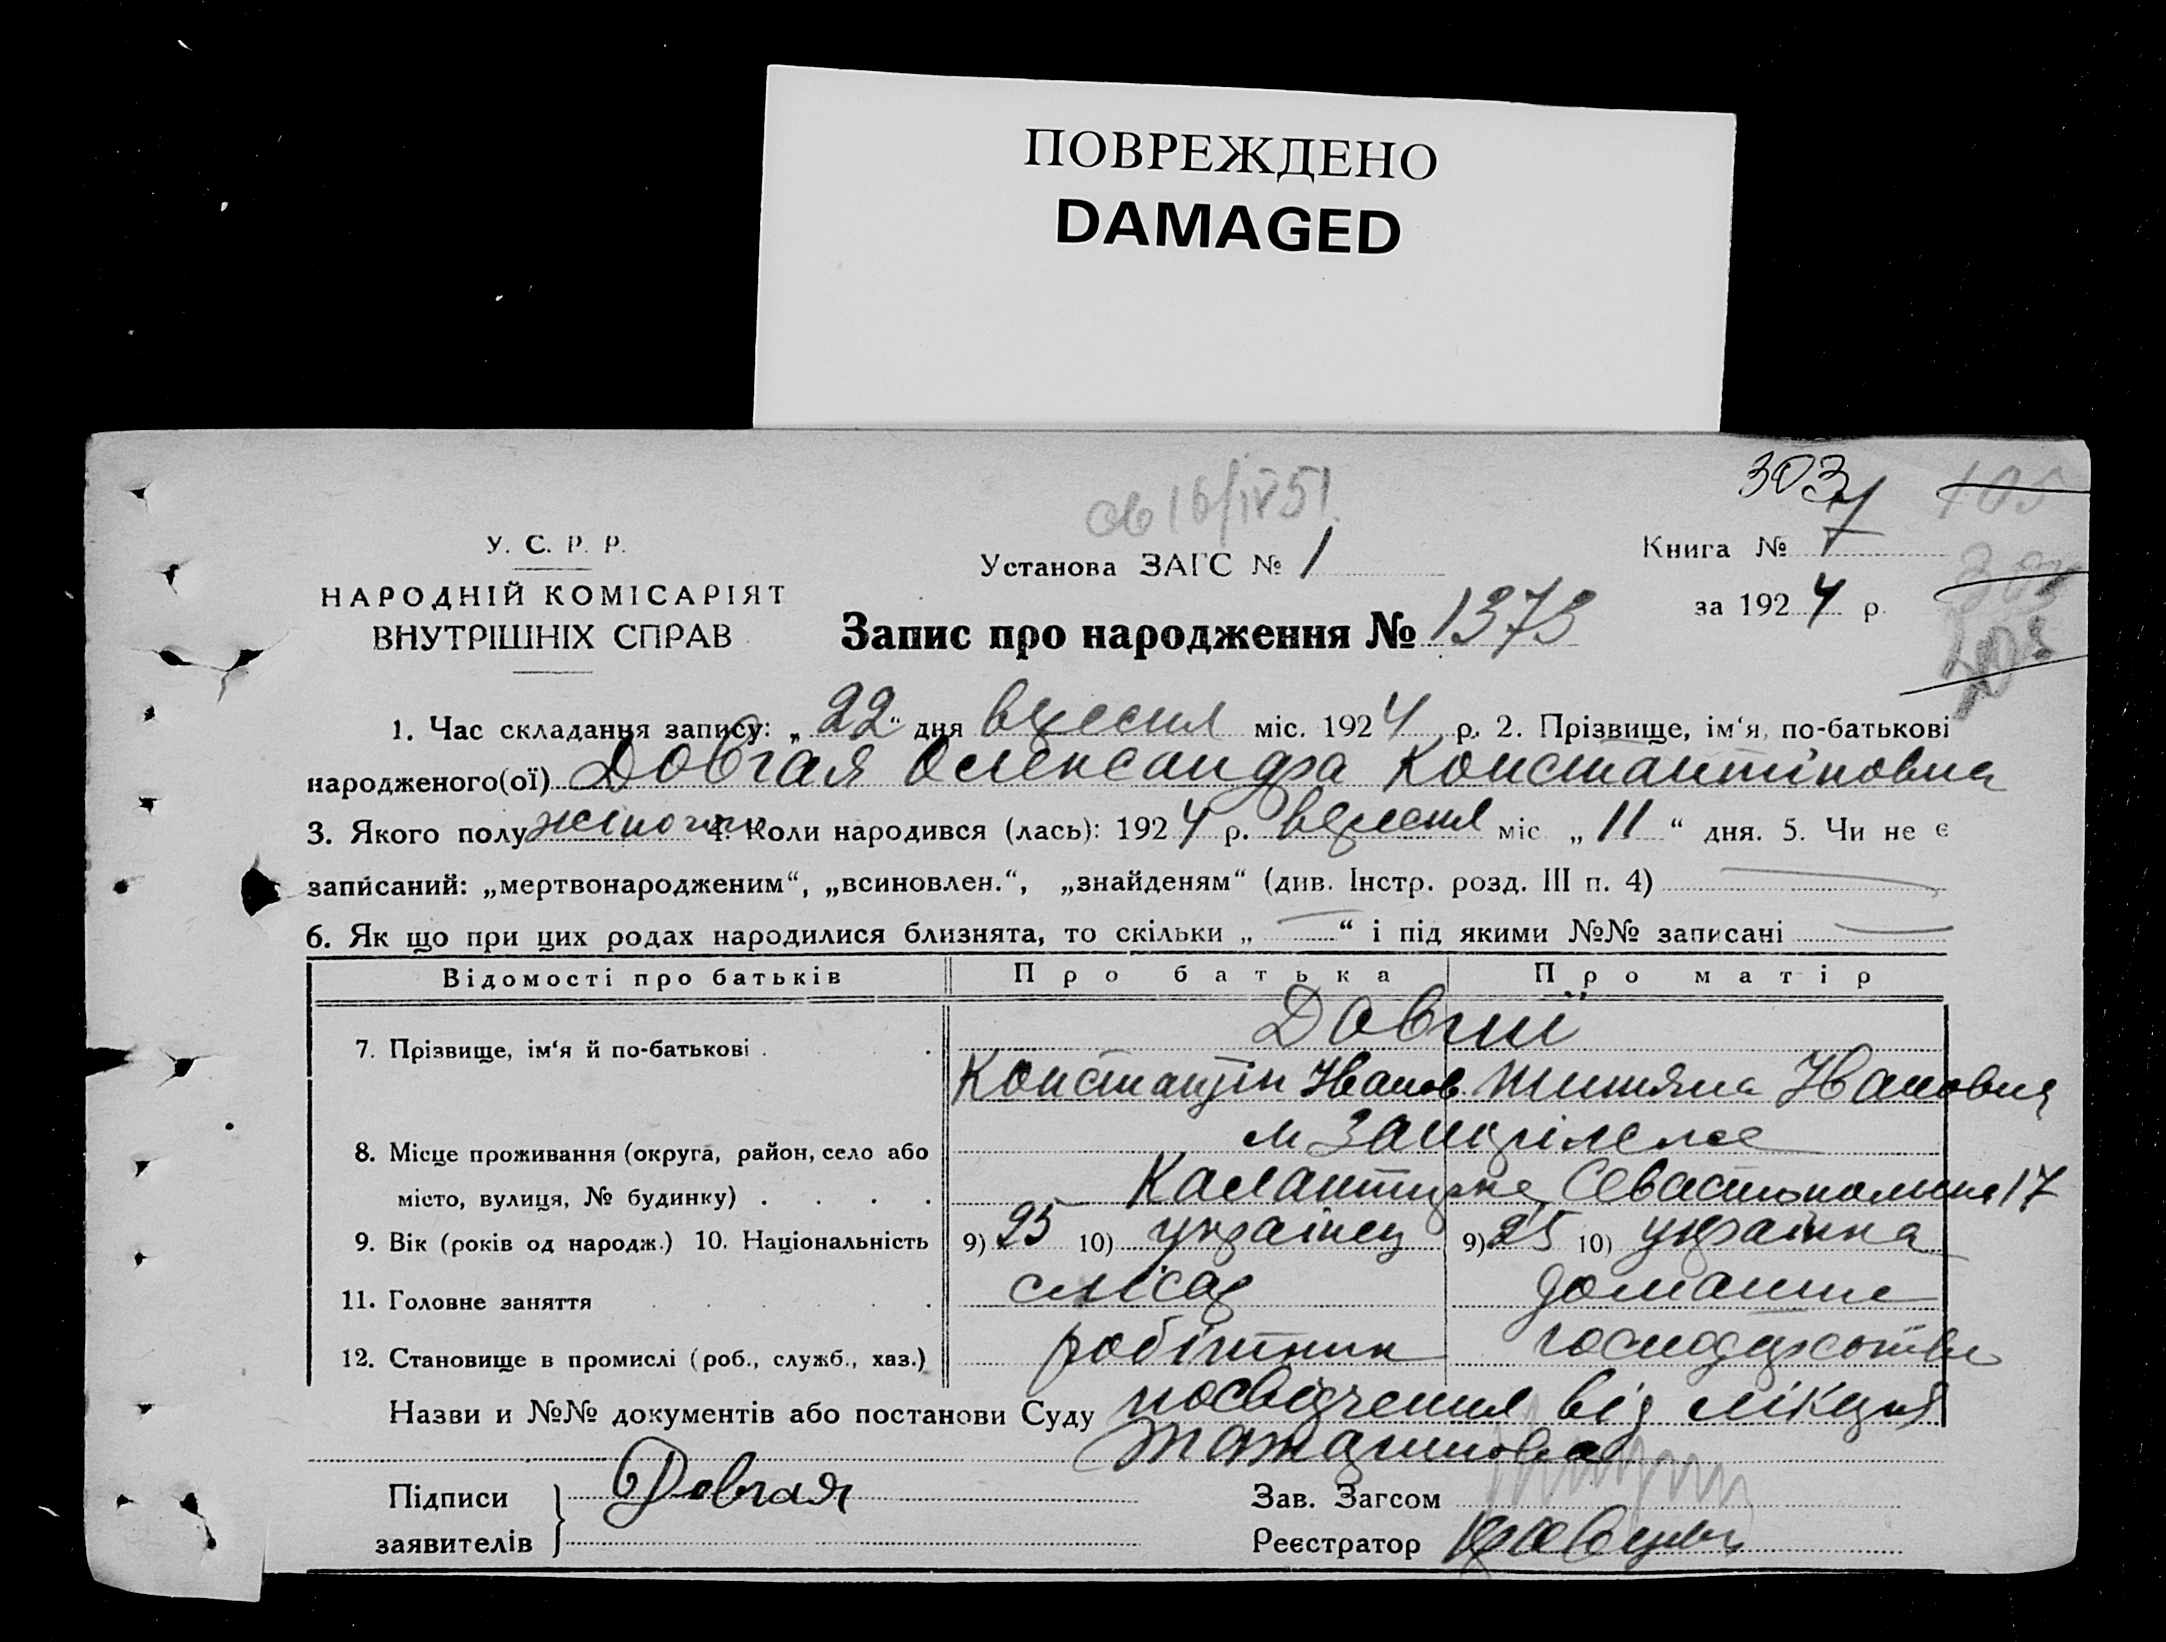 ПОВРЕЖДЕНО
DAMAGED
303
У. С. Р. Р.
НАРОДНІЙ КОМІСАРІЯТ
ВНУТРІШНІХ СПРАВ
Установа ЗАГС № 1
Книга №
за 1924 р.
Запис про народження № 1373
1. Час складання запису: „22“ дня вересня міс. 1924 р. 2. Прізвище, ім‘я, по-батькові
народженого(ої) Довгая Олександра Константіновна
3. Якого полу жіночого 4. Коли народився (лась): 1924 р. вересня міс „11“ дня. 5. Чи не є
записаний: „мертвонародженим“, „всиновлен.“, „знайденям“ (див. Інстр. розд. III п. 4)
6. Як що при цих родах народилися близнята, то скільки „ — “ і під якими №№ записані —
Відомості про батьків Про батька Про матір
7. Прізвище, ім‘я й по-батькові . . Довгиї
Константін Іванов Титяна Івановна
8. Місце проживання (округа, район, село або м
місто, вулиця, № будинку) . . . . Севастопольска 17
9. Вік (років од народж.) 10. Національність 9) 25 10) українец 9) 25 10) українка
11. Головне заняття . . . . . слісар домашнє
12. Становище в промислі (роб., служб., хаз.) робітник господарство
Назви и №№ документів або постанови Суду посвідчення від лікаря
Підписи заявителів } Довгая
Зав. Загсом
Реєстратор